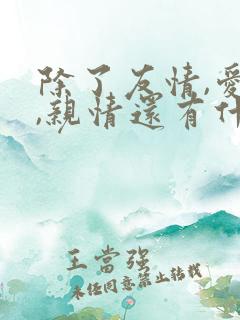 除了友情,愛
,親情還有什
王當強
未经同意禁止转载